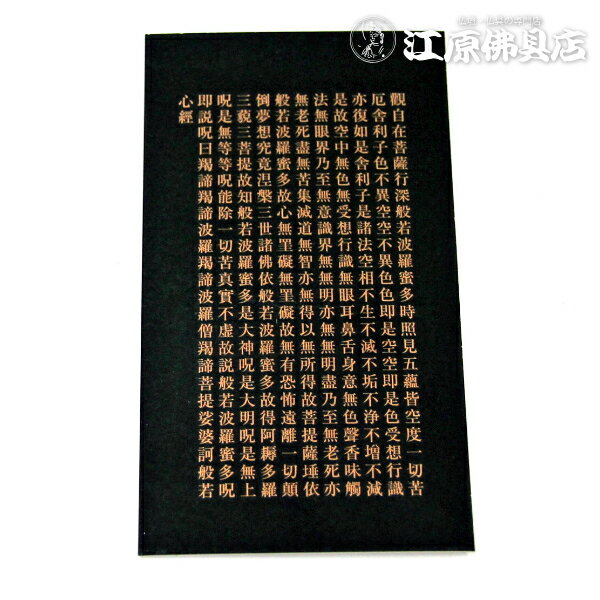 仏壇・仏具の専門店
江原佛具店
觀自在菩薩行深般若波羅蜜多時照見五蘊皆空度一切苦
厄舍利子色不異空空不異色色即是空空即是色受想行識
亦復如是舍利子是諸法空相不生不滅不垢不浄不増不減
是故空中無色無受想行識無眼耳鼻舌身意無色聲香味觸
法無眼界乃至無意識界無無明亦無無明盡乃至無老死亦
無老死盡無苦集滅道無智亦無得以無所得故菩提薩埵依
般若波羅蜜多故心無罣礙無罣礙故無有恐怖遠離一切顛
倒夢想究竟涅槃三世諸佛依般若波羅蜜多故得阿耨多羅
三藐三菩提故知般若波羅蜜多是大神呪是大明呪是無上
呪是無等等呪能除一切苦真實不虚故説般若波羅蜜多呪
即説呪曰羯諦羯諦波羅羯諦波羅僧羯諦菩提娑婆訶般若
心經